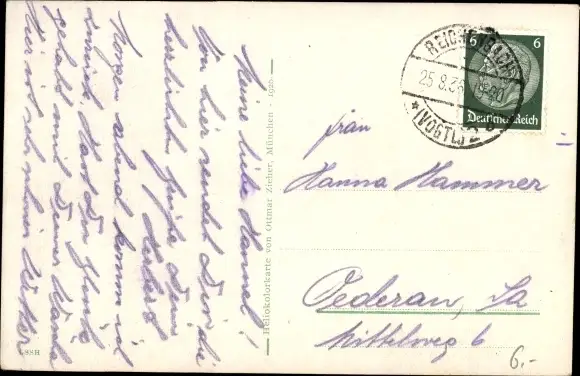 Meine liebe Hannel!
Von hier sendet Dir die
herzlichsten Grüße Dein
Herbert
Morgen abend komm ich
zurück. Hast Du Glück
gehabt mit Deiner
Hier ist sehr schönes Wetter
Heliokolorkarte von Ottmar Zieher, München
REICHENBACH
25.8.3
(VOGTL) 2
6 6
Deutsches Reich
Frau
Hanna Hammer
Oederan, Sa
Mittelweg 6
6.-